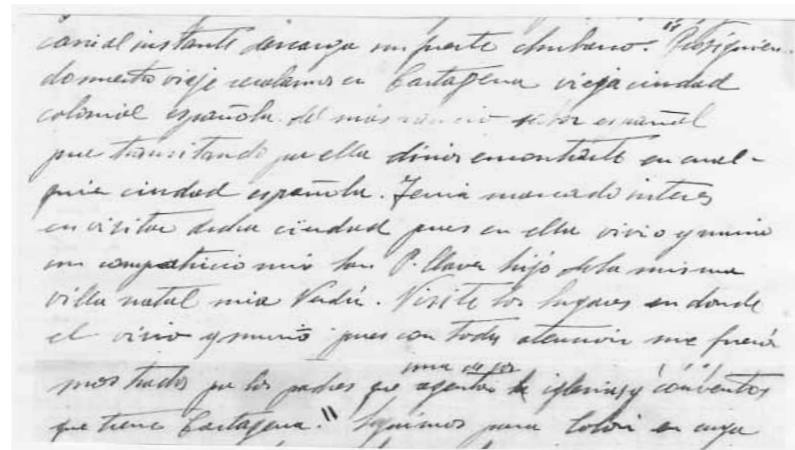 casi al instante descarga un fuerte chubasco." Prosiguien-
do nuestro viaje recalamos en Cartagena vieja ciudad
colonial española del más rancio sabor español
que transitando por ella dirias encontrarte en cual-
quier ciudad española. Tenia marcado interes
en visitar dicha ciudad pues en ella vivio y murio
un compatricio mio San P. Claver hijo de la misma
villa natal mia Verdú. Visite los lugares en donde
el vivio y murio pues con toda atencion me fueron
mostrados por los padres que iglesias y conventos
que tiene Cartagena." Seguimos para Colon en cuya